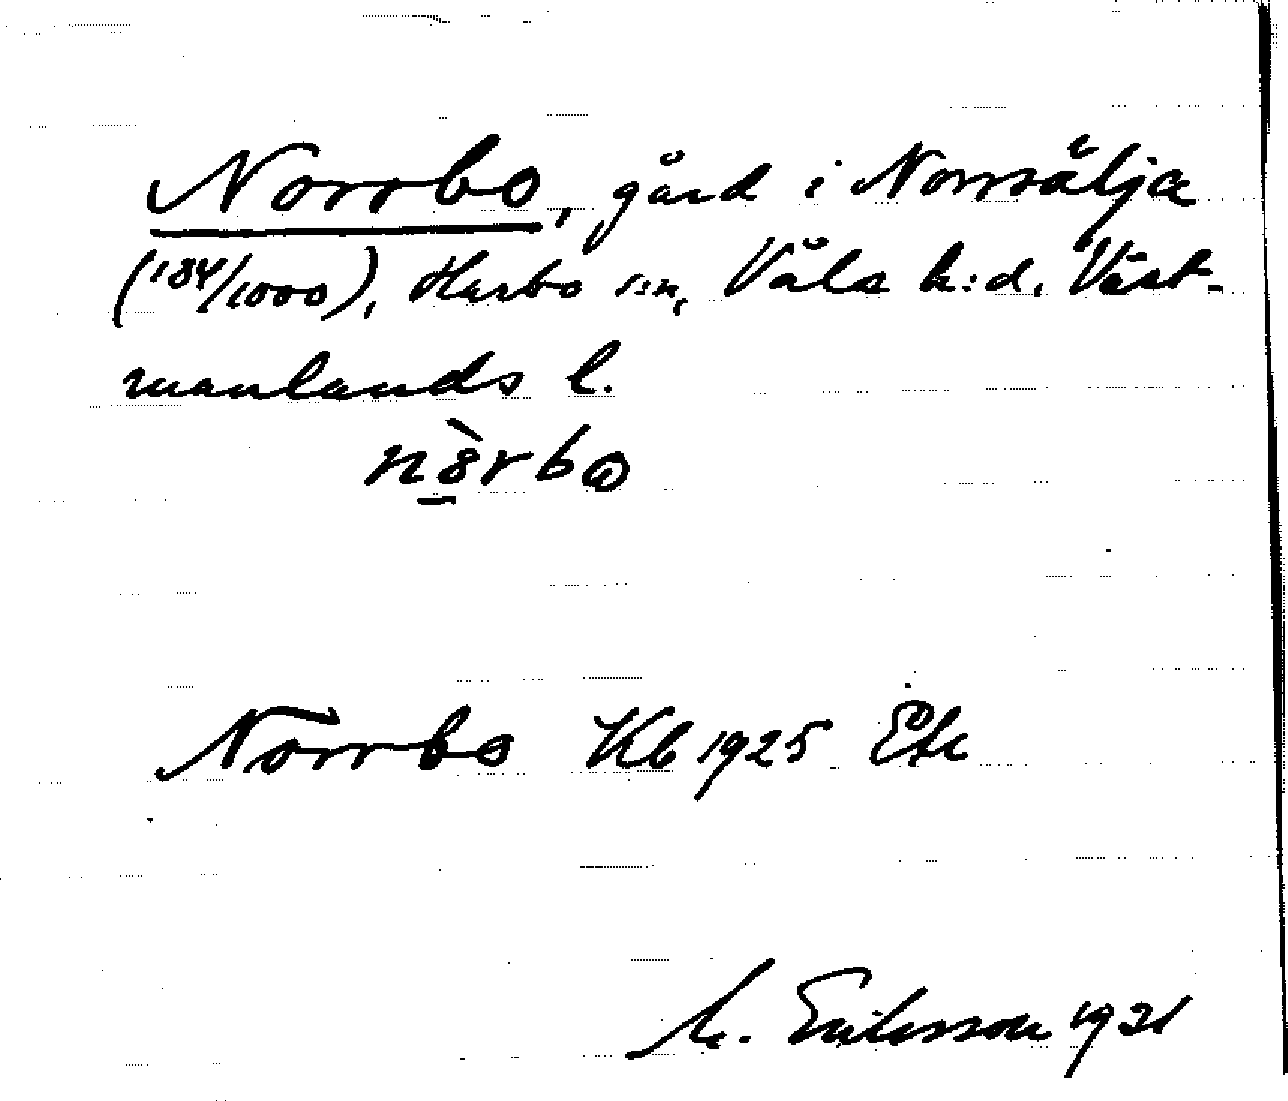 Norrbo, gård i Norrsälja
(184/1000), Harbo s:n, Våla h:d, Väst-
manlands l.
Norrbo Kb 1925 Ek
M. Eriksson 1931